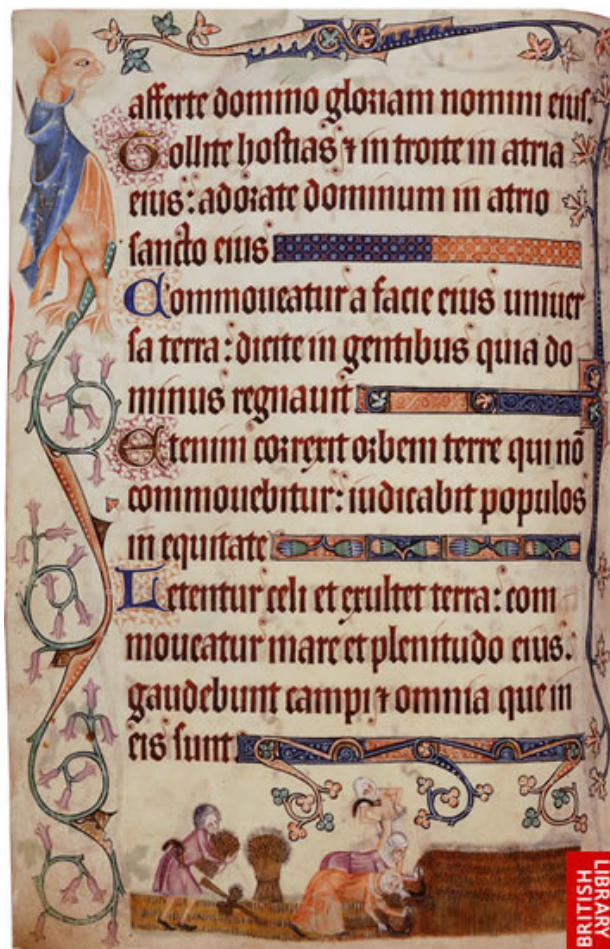 afferte domino gloriam nomini eius.
Tollite hostias ⁊ in troite in atria
eius : adorate dominum in atrio
sancto eius
Commoueatur a facie eius uniuer
sa terra : dicite in gentibus quia do
minus regnauit
Etenim correxit orbem terre qui nō
commouebitur : iudicabit populos
in equitate
Letentur celi et exultet terra : com
moueatur mare et plenitudo eius.
gaudebunt campi ⁊ omnia que in
eis sunt
BRITISH
LIBRARY